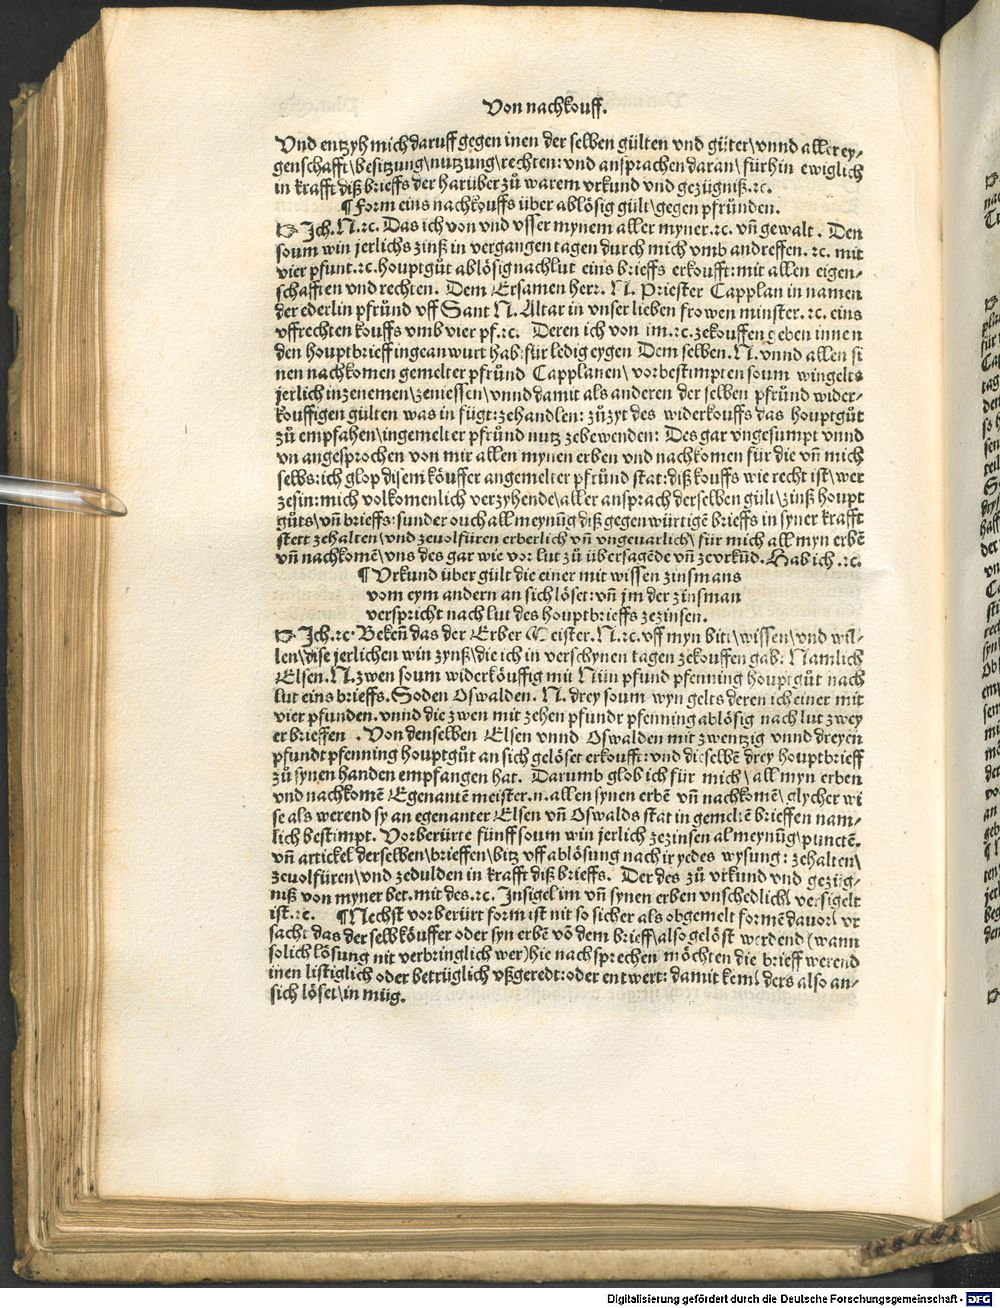 Von nachkouff.
Vnd entzyh mich daruff gegen inen der selben gülten vnd güter\ vnnd aller ey⸗
genschafft\ besitzung\ nutzung\ rechten: vnd ansprachen daran\ fürhin ewiglich
in krafft diß brieffs der harüber zů warem vrkund vnd gezügniß.ꝛc.
¶ Form eins nachkouffs über ablösig gült\ gegen pfründen.
☞ Jch. N.ꝛc. Das ich von vnd vsser mynem aller myner.ꝛc. vñ gewalt. Den
soum win jerlichs zinß in vergangen tagen durch mich vmb andreffen. ꝛc. mit
vier pfunt.ꝛc. houptgůt ablösig nach lut eins brieffs erkoufft: mit allen eigen⸗
schafften vnd rechten. Dem Ersamen herr. N. Priester Capplan in namen
der ederlin pfrůnd vff Sant N. Altar in vnser lieben frowen minster. ꝛc. eins
vffrechten kouffs vmb vier pf.ꝛc. Deren ich von im.ꝛc. zekouffen geben innen
den houptbrieff ingeanwurt hab: für ledig eygen Dem selben. N. vnnd allen si
nen nachkomen gemelter pfrůnd Capplanen\ vorbestimpten soum wingelts
jerlich inzenemen\ zeniessen\ vnnd damit als anderen der selben pfrůnd wider⸗
kouffigen gülten was in fügt: zehandlen: zůzyt des widerkouffs das houptgůt
zů empfahen\ in gemelter pfrůnd nutz zebewenden: Des gar vngesumpt vnnd
vn angesprochen von mir allen mynen erben vnd nachkomen für die vñ mich
selbs: ich glop disem köuffer angemelter pfrůnd stat: diß kouffs wie recht ist\ wer
zesin: mich volkomenlich verzyhende\ aller ansprach der selben gült\ zinß houpt
gůts\ vñ brieffs: sunder ouch all meynũg diß gegenwürtigẽ brieffs in syner krafft
stett zehalten\ vnd zeuolfüren erberlich vñ vngeuarlich\ für mich all myn erbẽ
vñ nachkomẽ\ vns des gar wie vor lut zů übersagẽde vñ zevrkũd. Hab ich .ꝛc.
¶ Vrkund über gült die einer mit wissen zinsmans
vom eym andern an sich löset: vñ jm der zinsman
verspricht nach lut des houptbrieffs zezinsen.
☞ Jch.ꝛc. Bekeñ das der Erber Meister. N.ꝛc. vff myn bitt\ wissen\ vnd wil⸗
len\ dise jerlichen win zynß\ die ich in verschynen tagen zekouffen gab: Namlich
Elsen. N. zwen soum widerköuffig mit Nün pfund pfenning houptgůt nach
lut eins brieffs. So den Oswalden. N. drey soum wyn gelts deren ich einer mit
vier pfunden. vnnd die zwen mit zehen pfundt pfenning ablösig nach lut zwey
er brieffen . Von denselben Elsen vnnd Oswalden mit zwentzig vnnd dreyen
pfundt pfenning houptgůt an sich gelöset erkoufft: vnd dieselbẽ drey houptbrieff
zů synen handen empfangen hat. Darumb glob ich für mich\ all myn erben
vnd nachkomẽ Egenantẽ meister. n. allen synen erbẽ vñ nachkomẽ\ glycher wi
se als werend sy an egenanter Elsen vñ Oswalds stat in gemeltẽ brieffen nam⸗
lich bestimpt. Vorberürte fünff soum win jerlich zezinsen al meynũg\ punctẽ.
vñ artickel der selben\ brieffen\ bitz vff ablösung nach ir yedes wysung: zehalten\
zeuolfüren\ vnd zedulden in krafft diß brieffs. Der des zů vrkund vnd gezüg⸗
niß von myner bet. mit des. ꝛc. Jnsigel im vñ synen erben vnschedlich versigelt
ist.ꝛc. ¶ Nechst vorberürt form ist nit so sicher als obgemelt formẽ dauor\ vr
sacht das der selb köuffer oder syn erbẽ võ dem brieff\ also gelöst werdend (wann
solich lösung nit verbringlich wer) hie nach sprechen möchten die brieff werend
inen listiglich oder betrüglich vßgeredt: oder entwert: damit ders also an⸗
sich löset\ in müg.
Digitalisierung gefördert durch die Deutsche Forschungsgemeinschaft - DFG